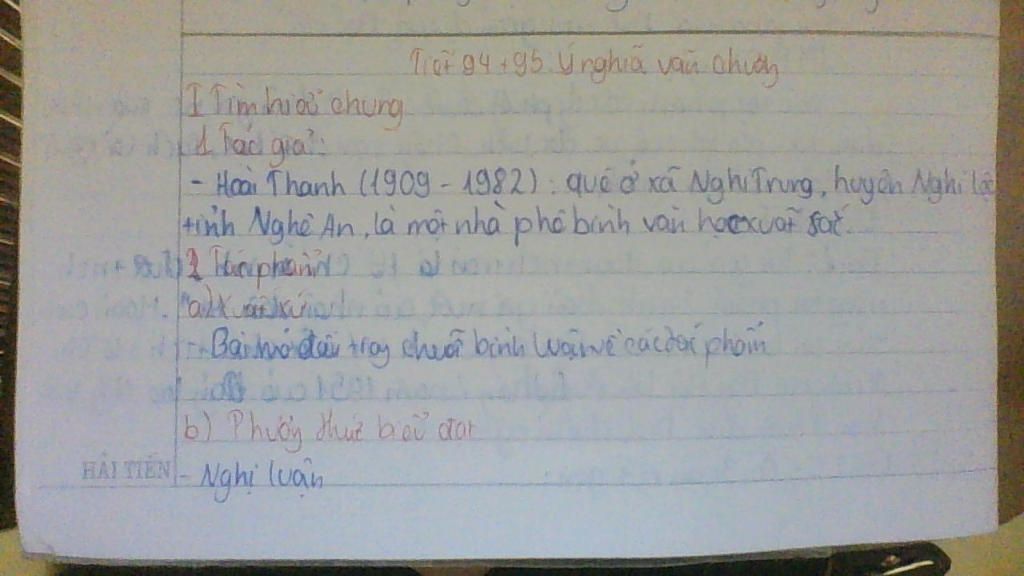 Tiết 94 + 95 Ý nghĩa văn chương
I Tìm hiểu chung
1. Tác giả:
- Hoài Thanh (1909 - 1982): quê ở xã Nghi Trung, huyện Nghi Lộc
tỉnh Nghệ An, là một nhà phê bình văn học xuất sắc.
2 Tác phẩm
a) Xuất xứ
- Bài in trong bình luận về các tác phẩm
b) Phương thức biểu đạt
HẢI TIẾN - Nghị luận